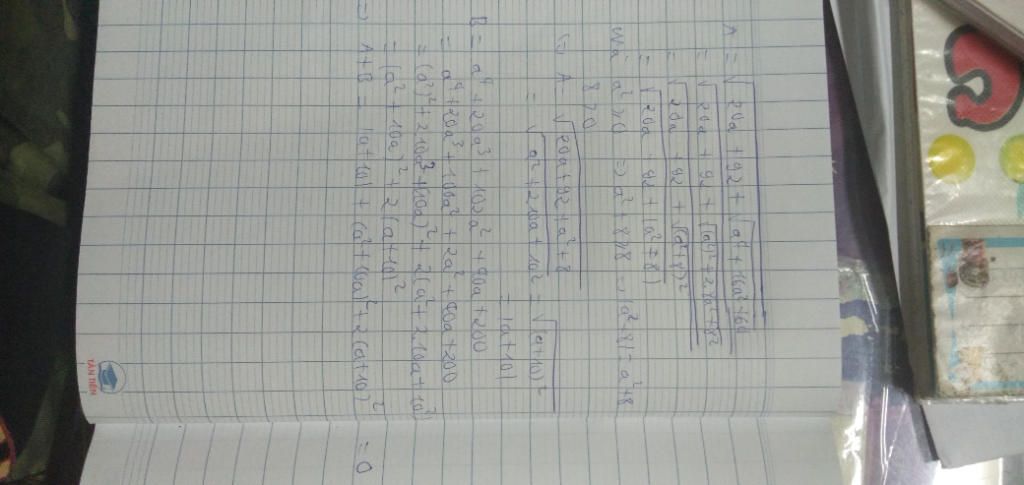 A = √(20a + 92 + √(a⁴ + 16a² + 64))
= √(20a + 92 + √((a²)² + 2.8a² + 8²))
= √(20a + 92 + √((a² + 8)²))
= √(20a + 92 + |a² + 8|)
Mà a² ≥ 0 => a² + 8 ≥ 8 => |a² + 8| = a² + 8
8 > 0
=> A = √(20a + 92 + a² + 8)
= √(a² + 2.10a + 10²) = √((a + 10)²)
= |a + 10|
B = a⁴ + 20a³ + 102a² + 40a + 200
= a⁴ + 20a³ + 100a² + 2a² + 40a + 200
= (a²)² + 2.10a³ + (10a)² + 2(a² + 2.10a + 10²)
= (a² + 10a)² + 2(a + 10)²
=> A + B = |a + 10| + (a² + 10a)² + 2(a + 10)² = 0
TÂN TIẾN